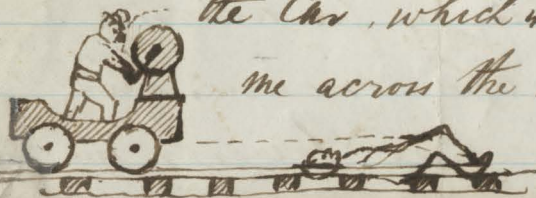 the Car, which
me across the